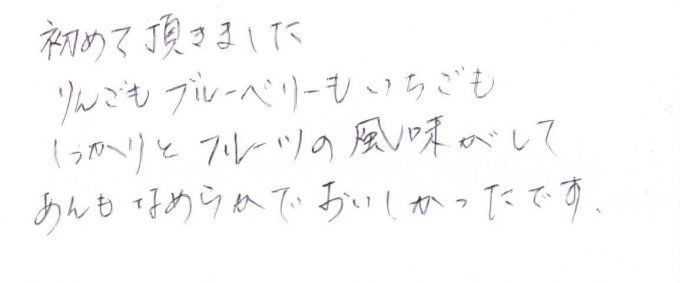 初めて頂きました
りんごもブルーベリーもいちごも
しっかりとフルーツの風味がして
あんもなめらかでおいしかったです.